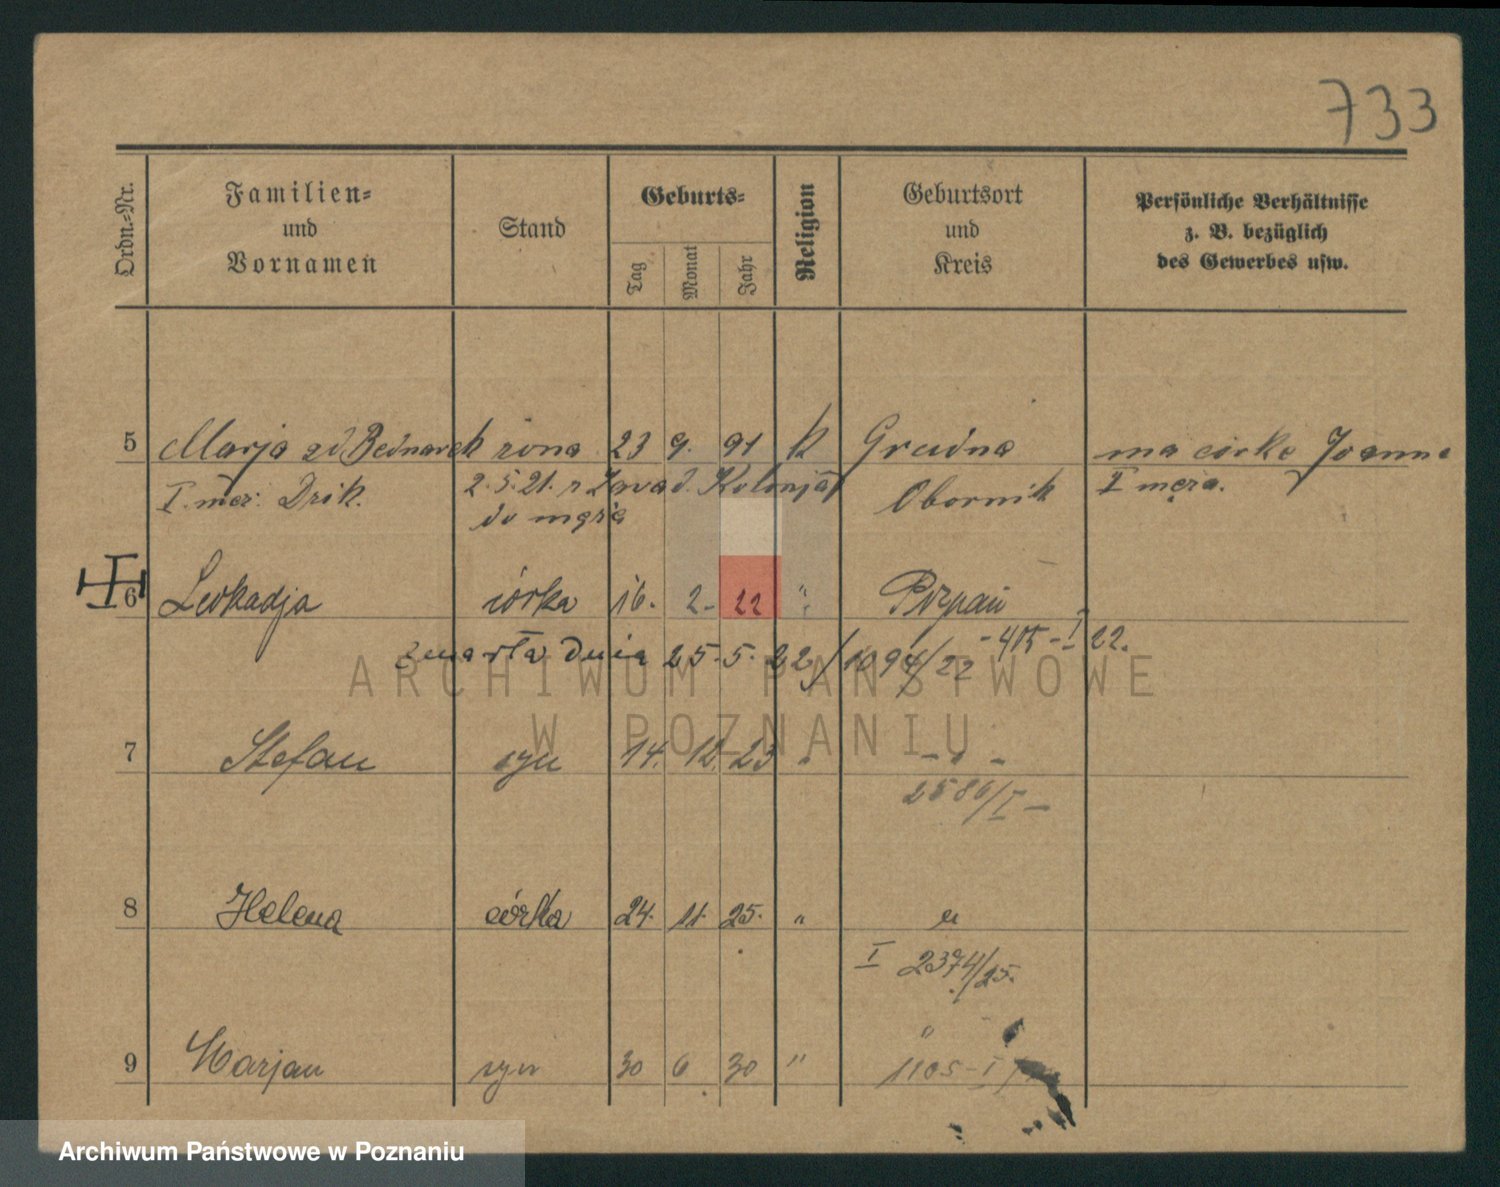 733
Ordn.-Nr.
Familien- und Vornamen
Stand
Geburts-
Tag
Monat
Jahr
Religion
Geburtsort und Kreis
Persönliche Verhältnisse z. B. bezüglich des Gewerbes usw.
5 Marja zd Bednarek żona 23 9. 91 k Grudna ma córkę Joanna
I. męż: Drik. 2.5.21. z Zawad. Kolonja Obornik I męża.
do męża
6 Leokadja córka 16. 2- 22 " Poznań
zmarła dnia 25.5.22/1094/22 -415-I 22.
7 Stefan syn 14. 12. 23 " - " -
2586/I-
8 Helena córka 24. 11. 25. " "
I 2374/25.
9 Marjan syn 30 6 30 " "
1105-I
ARCHIWUM PAŃSTWOWE
W POZNANIU
Archiwum Państwowe w Poznaniu